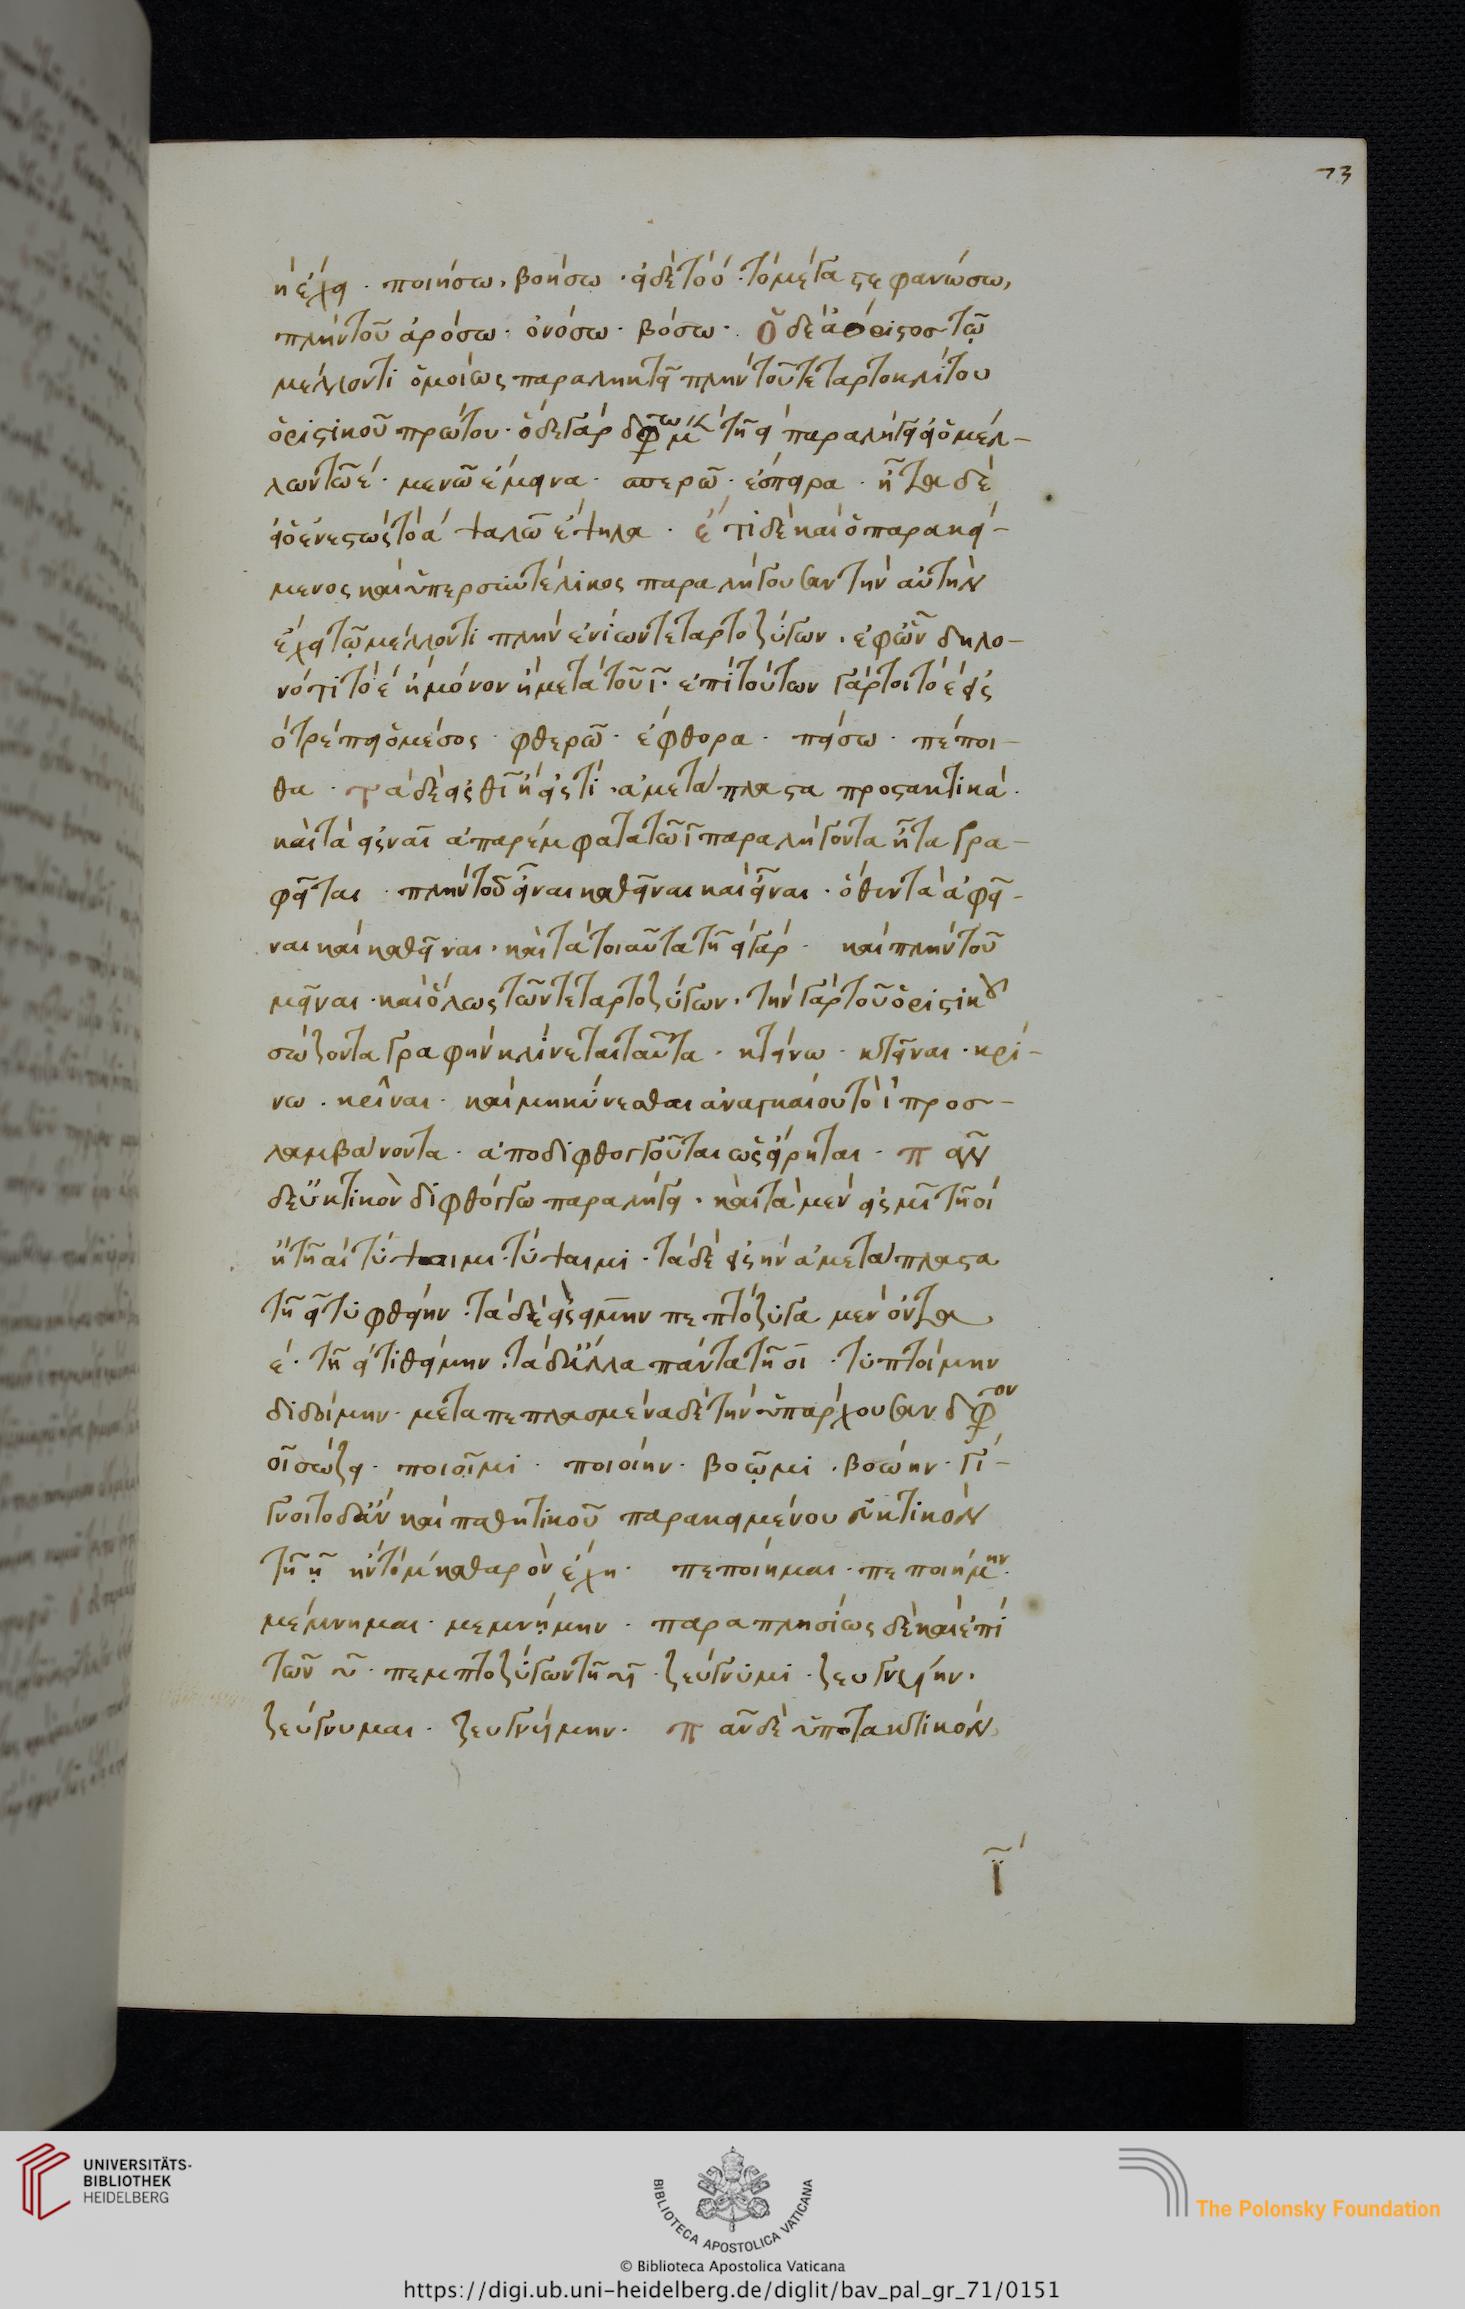 73
ἠ ἔχει · ποιήσω · βοήσω · εἰ δὲ τὸ ο · τὸ μέγα στεφανώσω,
πλὴν τοῦ ἀρόσω · ὀνόσω · βόσω · ὁ δὲ ἀόριστος τῷ
μέλλοντι ὁμοίως παραληκτεῖ πλὴν τοῦ τεταρτοκλίτου
ὁριστικοῦ πρώτου · ὅδε γὰρ τῇ ει παραλήγει εἰ ὁ μέλ-
λων τῷ ε · μενῶ ἔμεινα · σπερῶ · ἔσπειρα · ἦτα δὲ
εἰ ὁ ἐνεστὼς τὸ α ψαλῶ ἔψηλα · ἔτι δὲ καὶ ὁ παρακεί-
μενος καὶ ὑπερσυντέλικος παραλήγουσαν τὴν αὐτὴν
ἔχει τῷ μέλλοντι πλὴν ἐνίων τεταρτοζύγων · ἐφ' ὧν δηλο-
νότι τὸ ε ἢ μόνον ἢ μετὰ τοῦ ι · ἐπὶ τούτων γάρ τοι τὸ ε εἰς
ο τρέπει ὁ μέσος · φθερῶ · ἔφθορα · πείσω · πέποι-
θα · τὰ δὲ εἰς θι ἢ εἰς τι · ἀμετάπλαστα προστακτικά ·
καὶ τὰ εἰς ναι ἀπαρέμφατα τῷ ι παραλήγοντα ἦτα γρα-
φεῖται · πλὴν τοῦ εἶναι καθεῖναι καὶ εἶναι · ὅθεν τὰ ἀφεῖ-
ναι καὶ καθεῖναι · καὶ τὰ τοιαῦτα τῇ ει γάρ · καὶ πλὴν τοῦ
μεῖναι · καὶ ὅλως τῶν τεταρτοζύγων · τὴν γὰρ τοῦ ὁριστικοῦ
σώζοντα γραφὴν κλίνεται ταῦτα · κτείνω · κτεῖναι · κρί-
νω · κρῖναι · καὶ μηκύνεσθαι ἀναγκαίου τὸ ι προσ-
λαμβάνοντα · ἀποδιφθογγοῦται ὡς εἴρηται · πᾶν
δ' εὐκτικὸν διφθόγγω παραλήγει · καὶ τὰ μὲν εἰς μι τῇ οι
ἢ τῇ αι τύψοιμι · τύψαιμι · τὰ δὲ εἰς ην ἀμετάπλαστα
τῇ ει τυφθείην · τὰ δὲ εἰς ειμην πεπτόζυγα μὲν ὄντα
ε · τῇ ει τιθείμην · τὰ δ' ἄλλα πάντα τῇ οι · τυπτοίμην
διδοίμην · μεταπεπλασμένα δὲ τὴν ὑπάρχουσαν
οἱ σώζει · ποιοῖμι · ποιοίην · βοῷμι · βοῴην · γί-
γνοιτο δ' ἂν καὶ παθητικοῦ παρακειμένου εὐκτικὸν
τῇ ῃ ἢν τὸ μ καθαρὸν ἔχῃ · πεποίημαι · πεποιῄμην ·
μέμνημαι · μεμνῄμην · παραπλησίως δὲ καὶ ἐπὶ
τῶν υ · πεμπτοζύγων τῇ υι · ζεύγνυμι · ζευγνυίην ·
ζεύγνυμαι · ζευγνυίμην · πᾶν δὲ ὑποτακτικὸν
ϊ
UNIVERSITÄTS-
BIBLIOTHEK
HEIDELBERG
BIBLIOTECA APOSTOLICA VATICANA
The Polonsky Foundation
© Biblioteca Apostolica Vaticana
https://digi.ub.uni-heidelberg.de/diglit/bav_pal_gr_71/0151